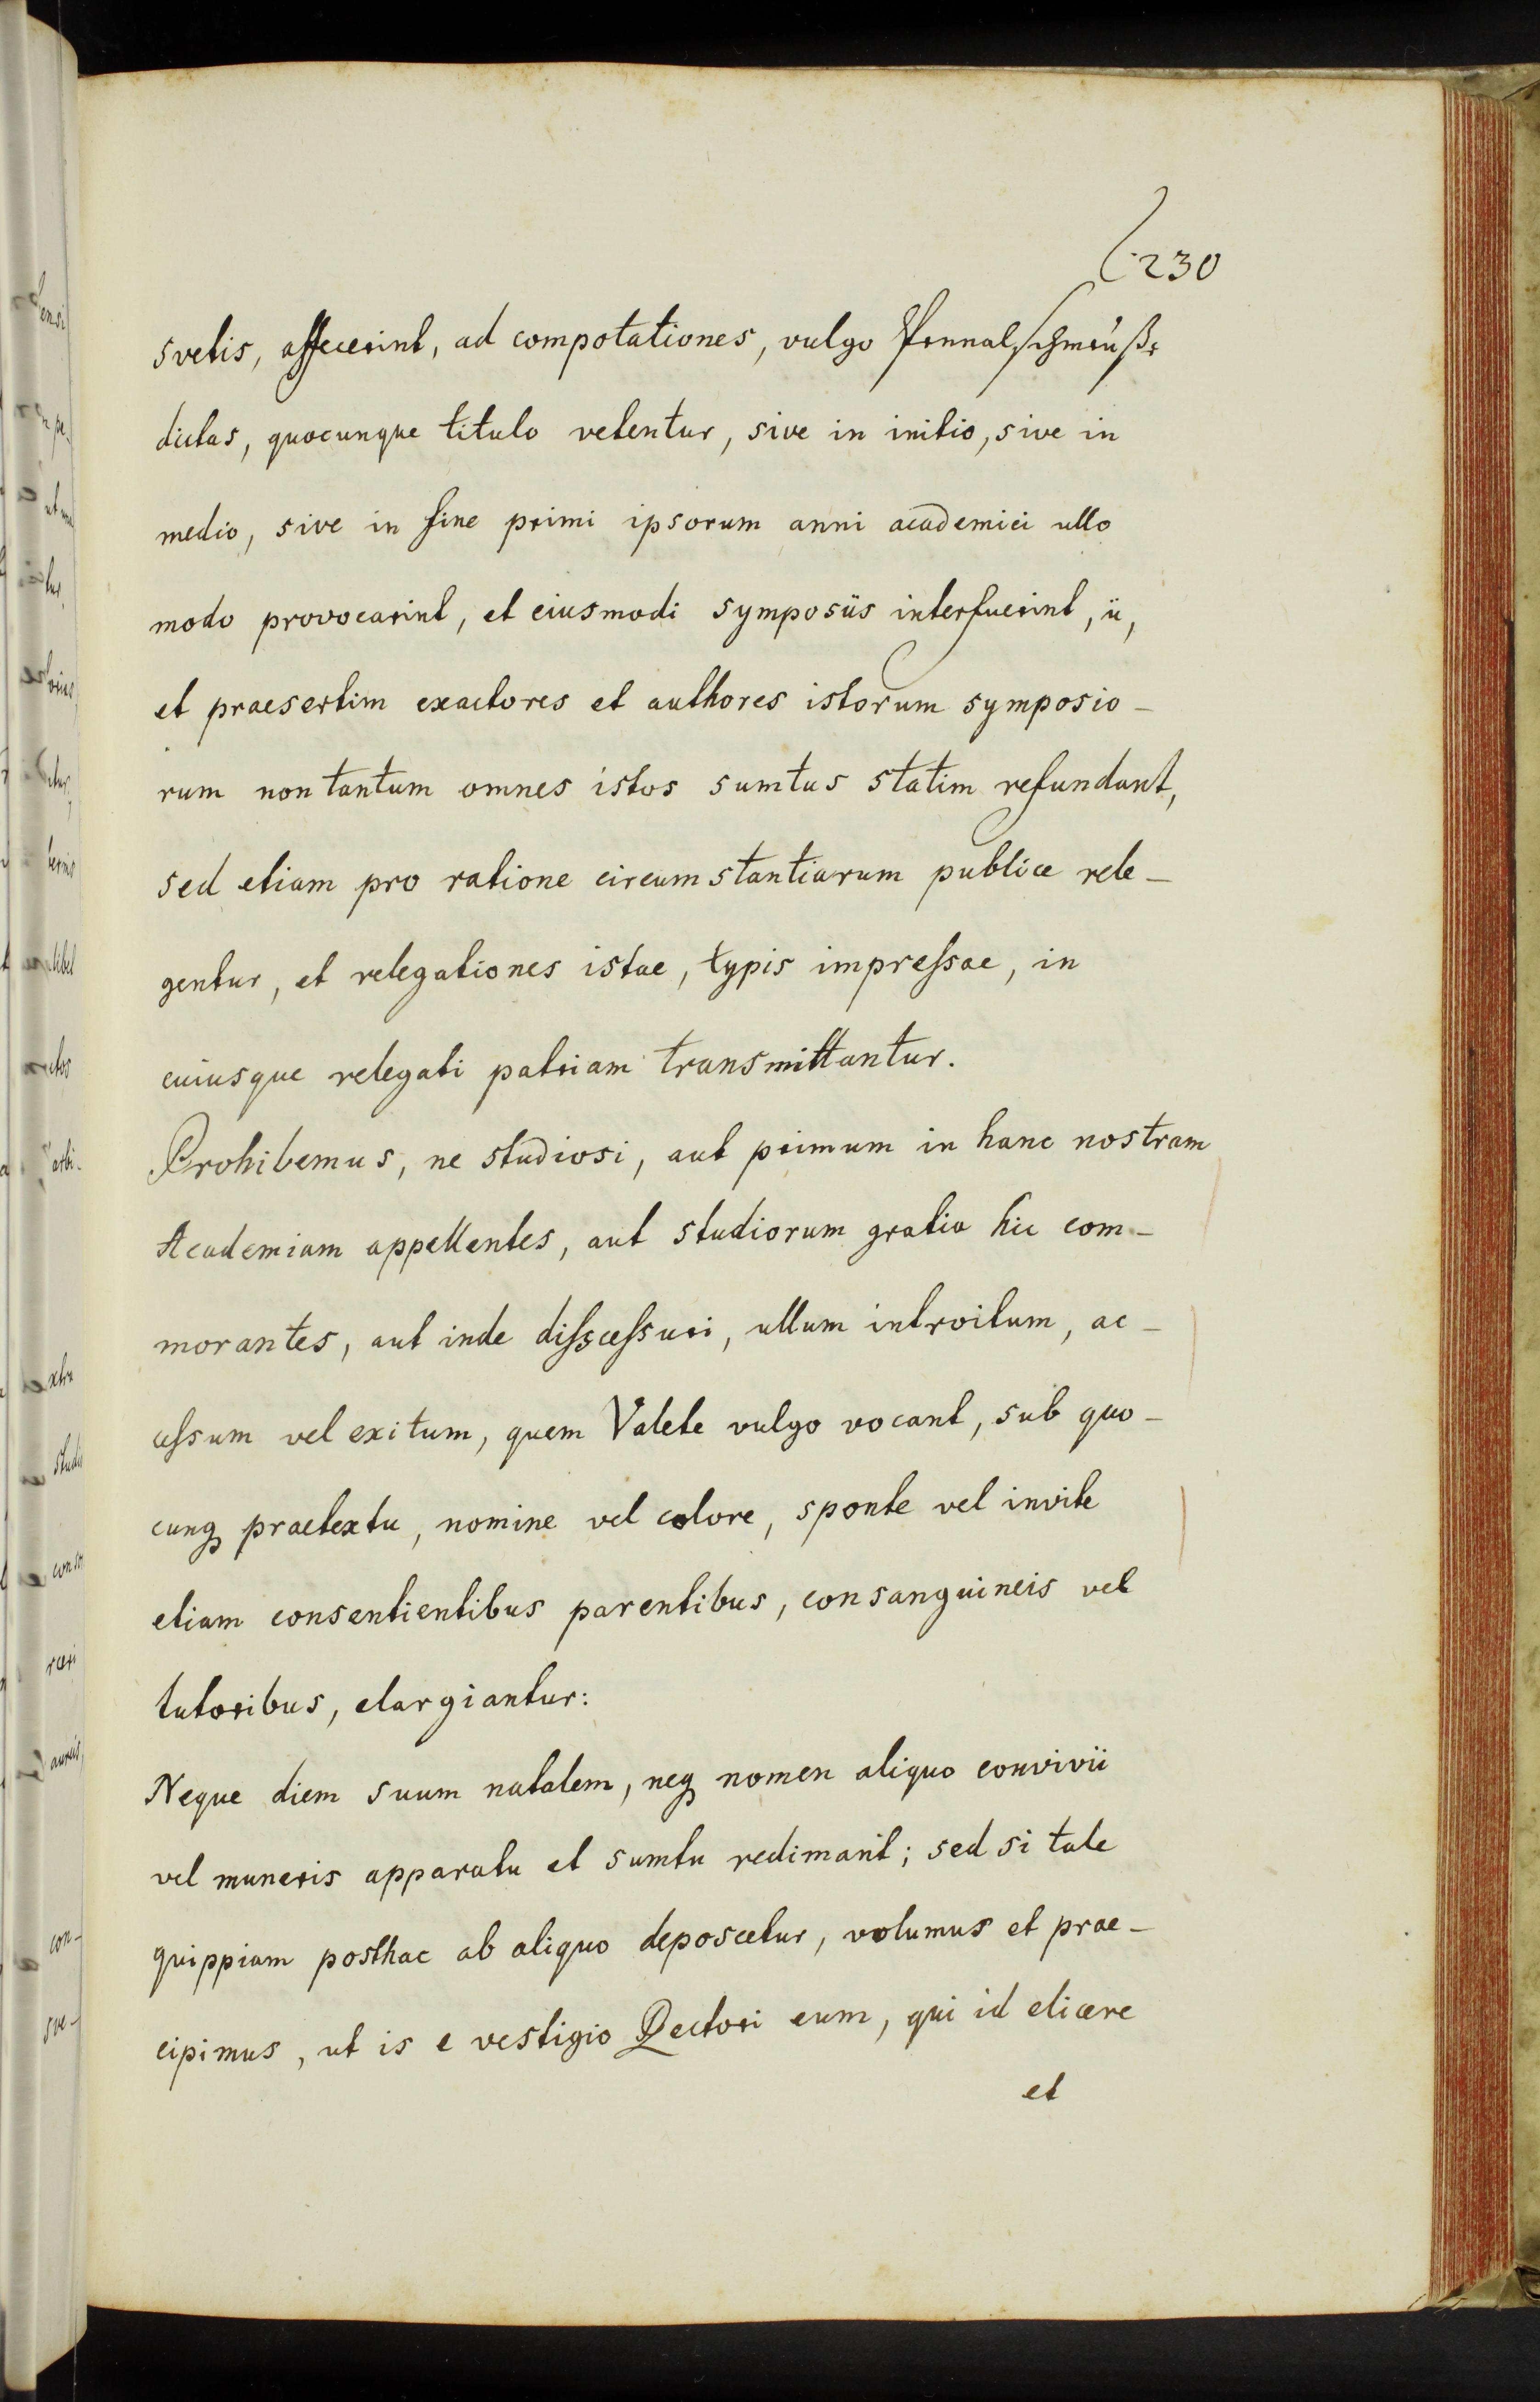 230
svetis, affecerint, ad compotationes, vulgo Pennalschmeüße
dictas, quocunque titulo vetentur, sive in initio, sive in
medio, sive in fine primi ipsorum anni academici ullo
modo provocarint, et eiusmodi symposiis interfuerint, ii,
et praesertim exactores et authores istorum symposio-
rum non tantum omnes istos sumtus statim refundant,
sed etiam pro ratione circumstantiarum publice rele-
gentur, et relegationes istae, typis impressae, in
cuiusque relegati patriam transmittantur.
Prohibemus, ne studiosi, aut primum in hanc nostram
Academiam appellentes, aut studiorum gratia hic com-
morantes, aut inde disscessuri, ullum introitum, ac-
cessum vel exitum, quem Valete vulgo vocant, sub quo-
cunq praetextu, nomine vel colore, sponte vel invite
etiam consentientibus parentibus, consanguineis vel
tutoribus, elargiantur:
Neque diem suum natalem, neq nomen aliquo convivii
vel muneris apparatu et sumtu redimant; sed si tale
quippiam posthac ab aliquo deposcetur, volumus et prae-
cipimus, ut is e vestigio Rectori eum, qui id elicere
et